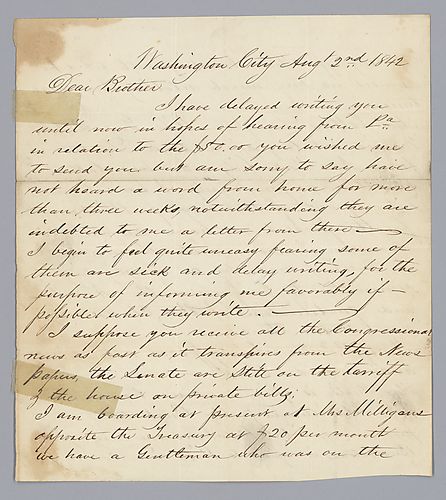 Washington City Augt 2nd 1842
Dear Brother
I have delayed writing you
until now in hopes of hearing from Pa
in relation to the $50.00 you wished me
to send you but am sorry to say have
not heard a word from home for more
than three weeks, notwithstanding they are
indebted to me a letter from there —
I begin to feel quite uneasy fearing some of
them are sick and delay writing, for the
purpose of informing me favorably if —
possible when they write. —
I suppose you receive all the Congressional
news as fast as it transpires from the News
papers, the Senate are still on the tarriff
& the house on private bills;
I am boarding at present at Mrs Milligans
opposite the Treasury at $20 per month
we have a Gentleman who was on the